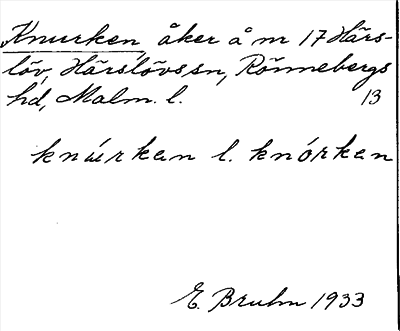 Knurken, åker å nr 17 Härs-
löv, Härslövs sn, Rönnebergs
hd, Malm. l. 13
knúrkan l. knórkan
E. Bruhn 1933